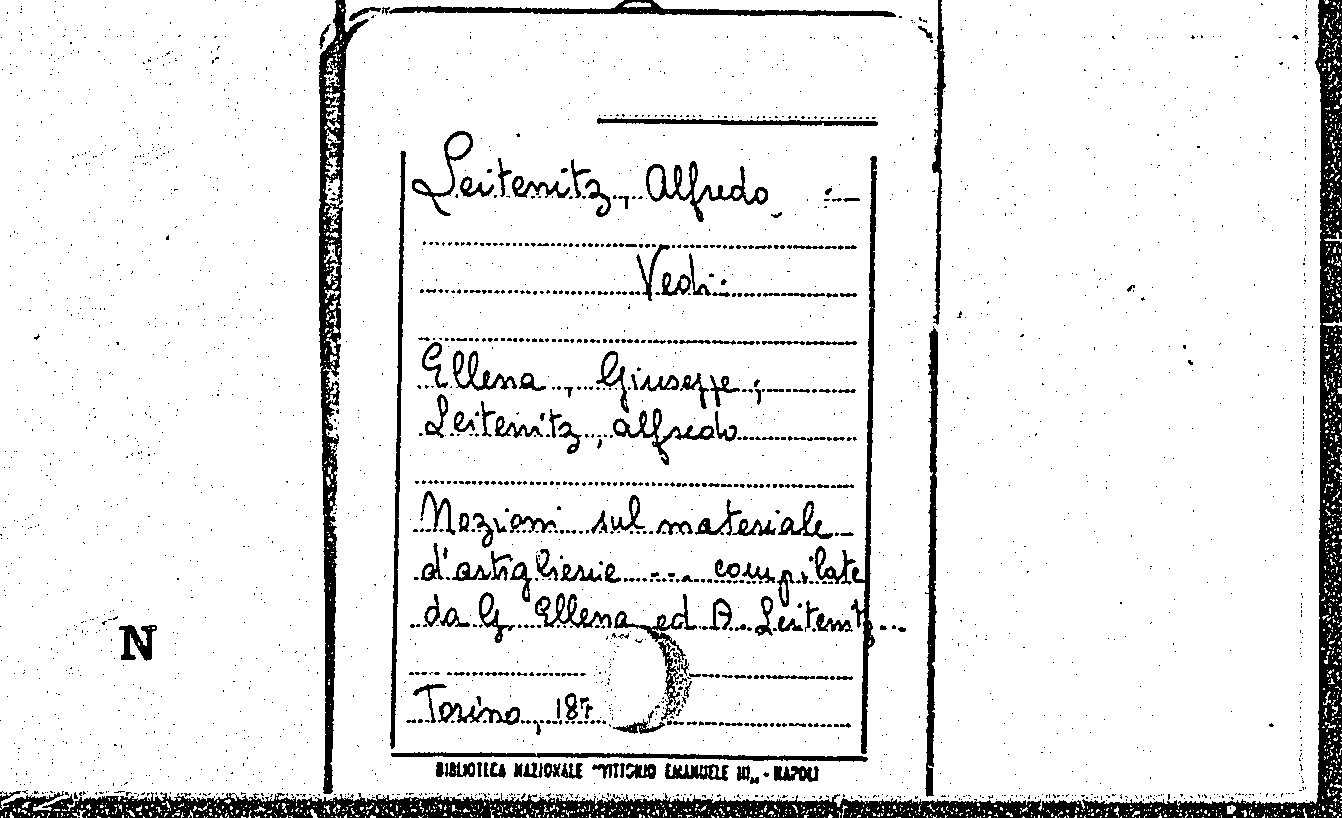 Leitenitz, Alfredo. :—
Vedi:
Ellena, Giuseppe;
Leitenitz, Alfredo
Nozioni sul materiale
d'artiglierie ... compilate
da G. Ellena ed A. Leitenitz...
N
Torino, 187
BIBLIOTECA NAZIONALE "VITTORIO EMANUELE III„ - NAPOLI